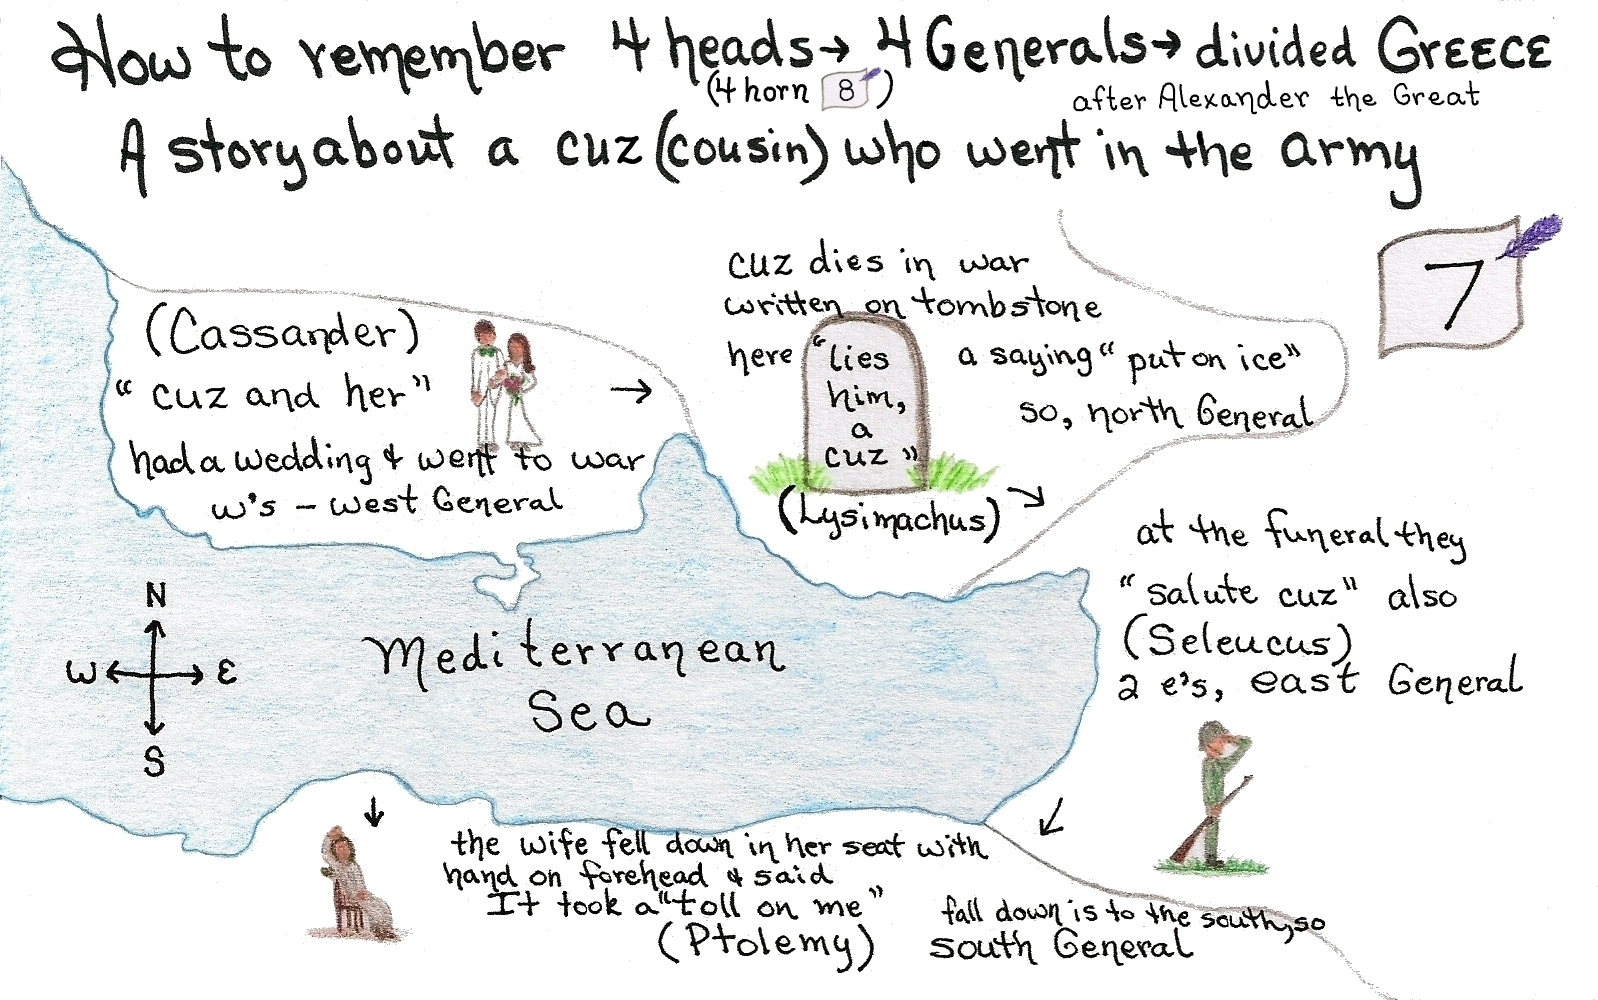 How to remember 4 heads→ 4 Generals→ divided GREECE
(4 horn 8)
after Alexander the Great
A story about a cuz (cousin) who went in the army
7
(Cassander)
"cuz and her"
had a wedding & went to war
w's - west General
→
cuz dies in war
written on tombstone
here "lies
him,
a
cuz"
(Lysimachus)
a saying "put on ice"
so, north General
at the funeral they
"salute cuz" also
(Seleucus)
2 e's, east General
N
W E
S
Mediterranean
Sea
the wife fell down in her seat with
hand on forehead & said
It took a "toll on me"
(Ptolemy)
fall down is to the south, so
south General